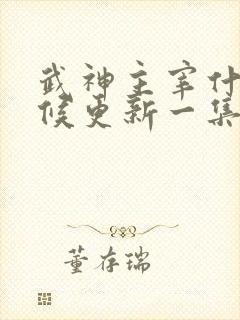 武神主宰什
候更新一集
董存瑞